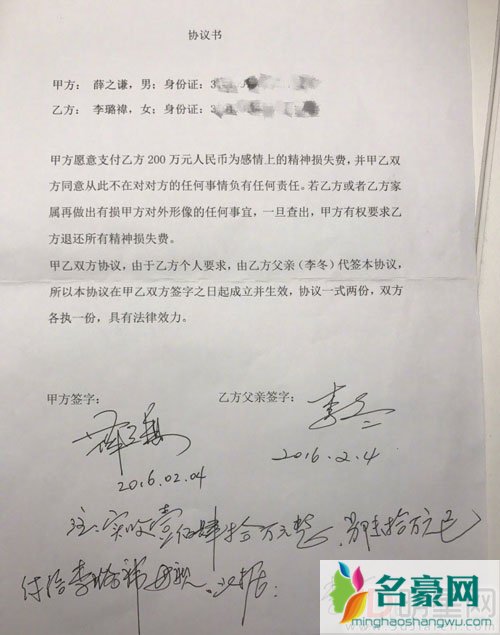 协议书
甲方：薛之谦，男；身份证：3
乙方：李璐禕，女；身份证：3
甲方愿意支付乙方 200 万元人民币为感情上的精神损失费，并甲乙双
方同意从此不在对对方的任何事情负有任何责任。若乙方或者乙方家
属再做出有损甲方对外形像的任何事宜，一旦查出，甲方有权要求乙
方退还所有精神损失费。
甲乙双方协议，由于乙方个人要求，由乙方父亲（李冬）代签本协议，
所以本协议在甲乙双方签字之日起成立并生效，协议一式两份，双方
各执一份，具有法律效力。
甲方签字： 乙方父亲签字：
薛之谦 李冬
2016.02.04 2016.2.4
注：实收壹佰肆拾万元整，另陆拾万元已
付给李璐禕母亲。收据：
名豪网
minghaoshangmao.com